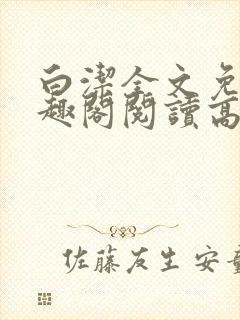 白潔全文免
趣閣閱讀高
佐藤友生 安